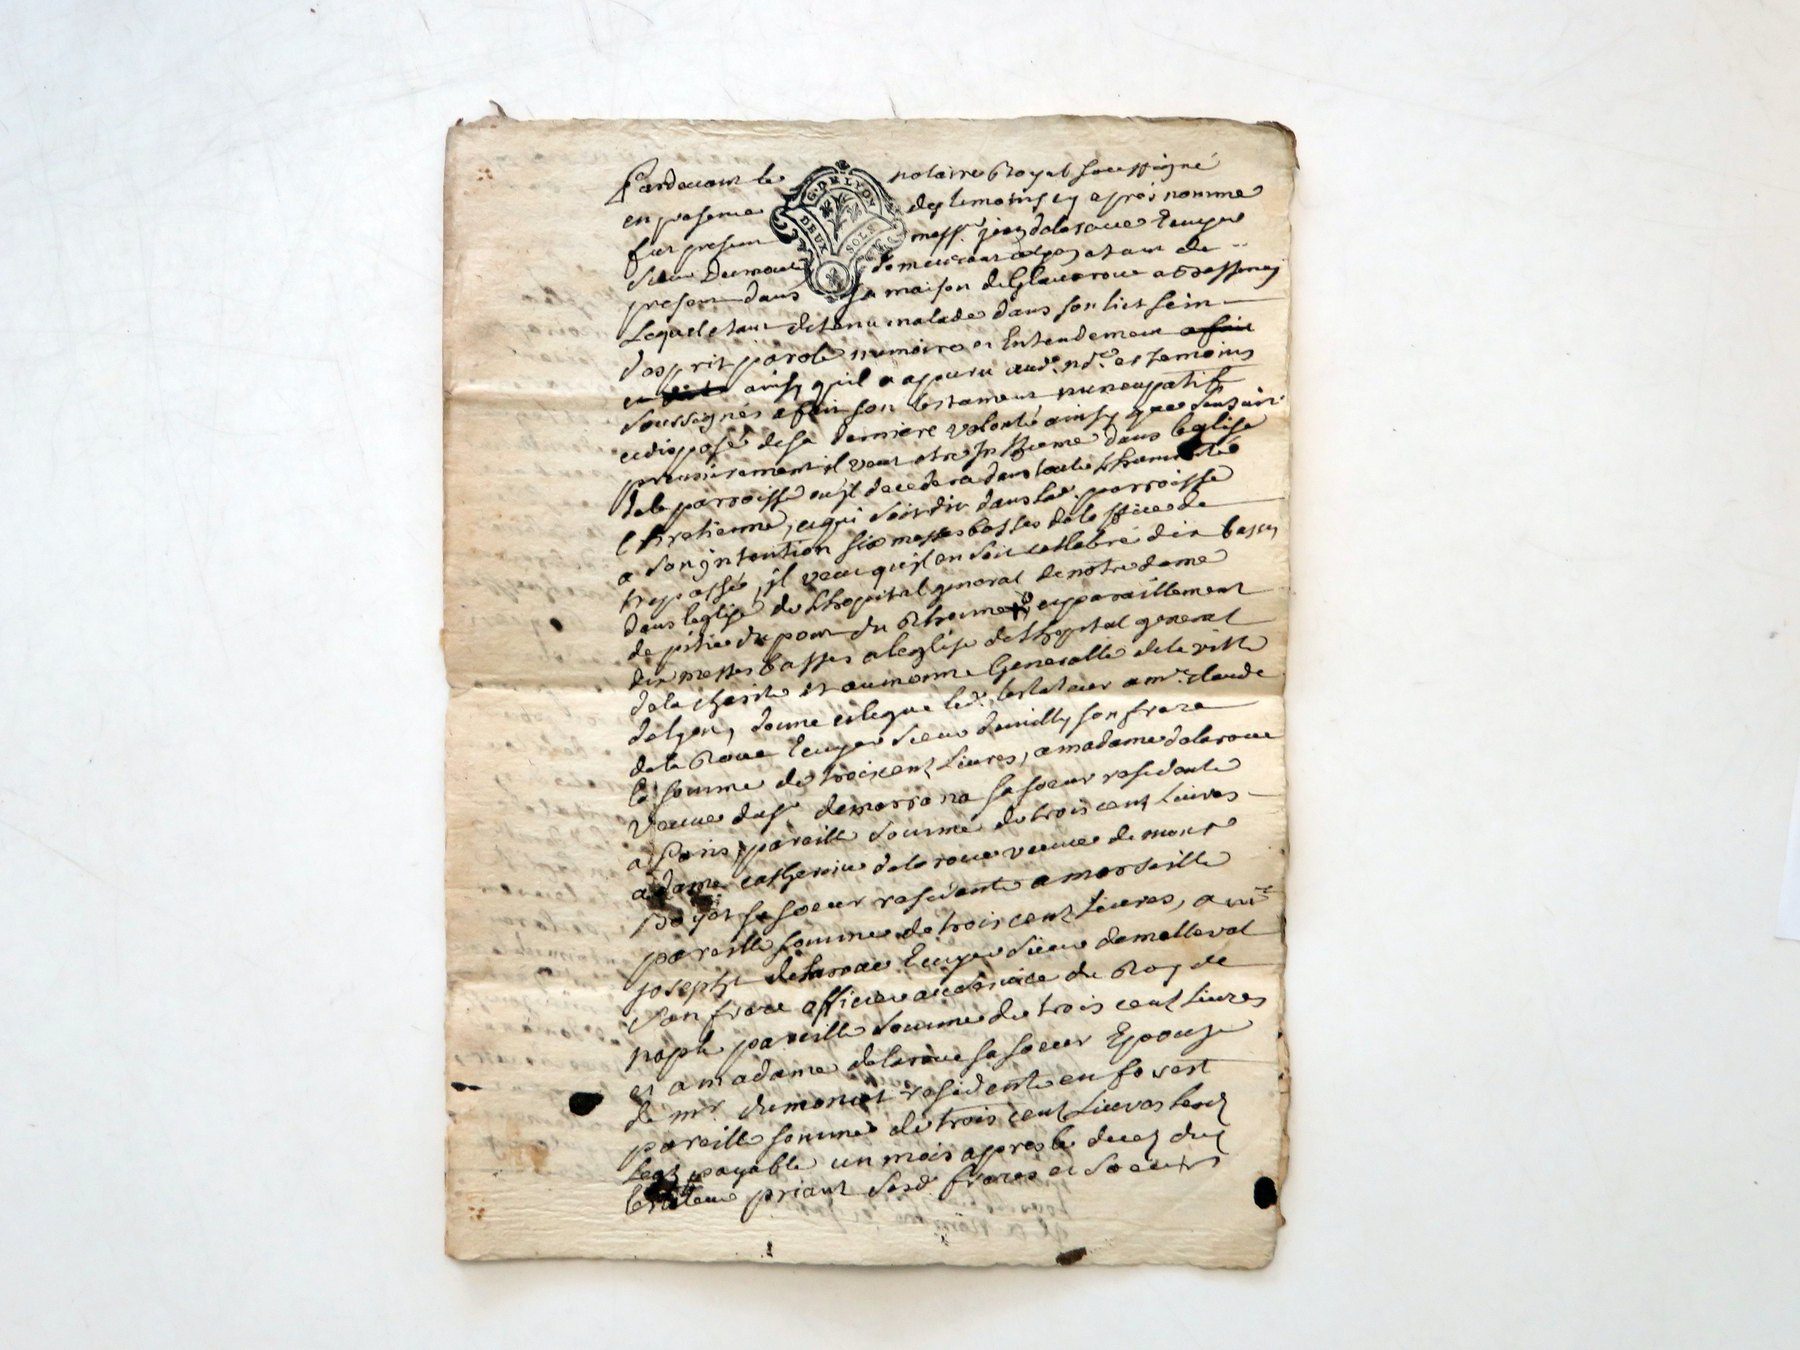 Pardevant le notaire Royal soussigné
G. DE LYON
DEUX SOLS
en presence des temoins cy apres nomme
fut present mess.re jean delaroue Ecuyer
Sieur Dumont demeurant a
present dans sa maison de
Lequel etant detenu malade dans son lict sein
desprit parole memoire et Entendement
et ainsy quil a apparu aud.t nd.re et temoins
soussignés a fait son testament nuncupatif
et disposé de sa derniere volonté ainsy que sensuit
premierement il veut etre In dans leglise
dela parroisse ou jl decedera dans toute lhumilité
Chretienne, et qui soit dit dans lad. parroisse
a son jntention six messes basses de loffice de
trepassé, jl veut quil en soit cellebré dix basses
dans leglise de Lhopital general de notre dame
de pitié du pont du Rhone et pareillement
dix messes basses a leglise de Lhopital general
dela charité et aumone Generalle dela ville
de lyon, donne et legue led. testateur a mr. claude
dela Roue Ecuyer sieur demilly son frere
la somme de trois cent Livres, a madame delaroue
veuve du sr. demorrona sa soeur residente
a Paris pareille somme de trois cent Livres
a dame catherine delaroue veuve de mont
sa soeur residente a marseille
pareille somme de trois cent Livres, a mr.
joseph delaroue Ecuyer sieur demalleval
son frere officier au service du Roy de
naple pareille somme de trois cent Livres
et a madame delaroue sa soeur Epouze
de mr dumoncet residente en forest
pareille somme de trois cent Livres lesd
Legs payable un mois apres le deces dud
testateur priant sesd. freres et soeurs